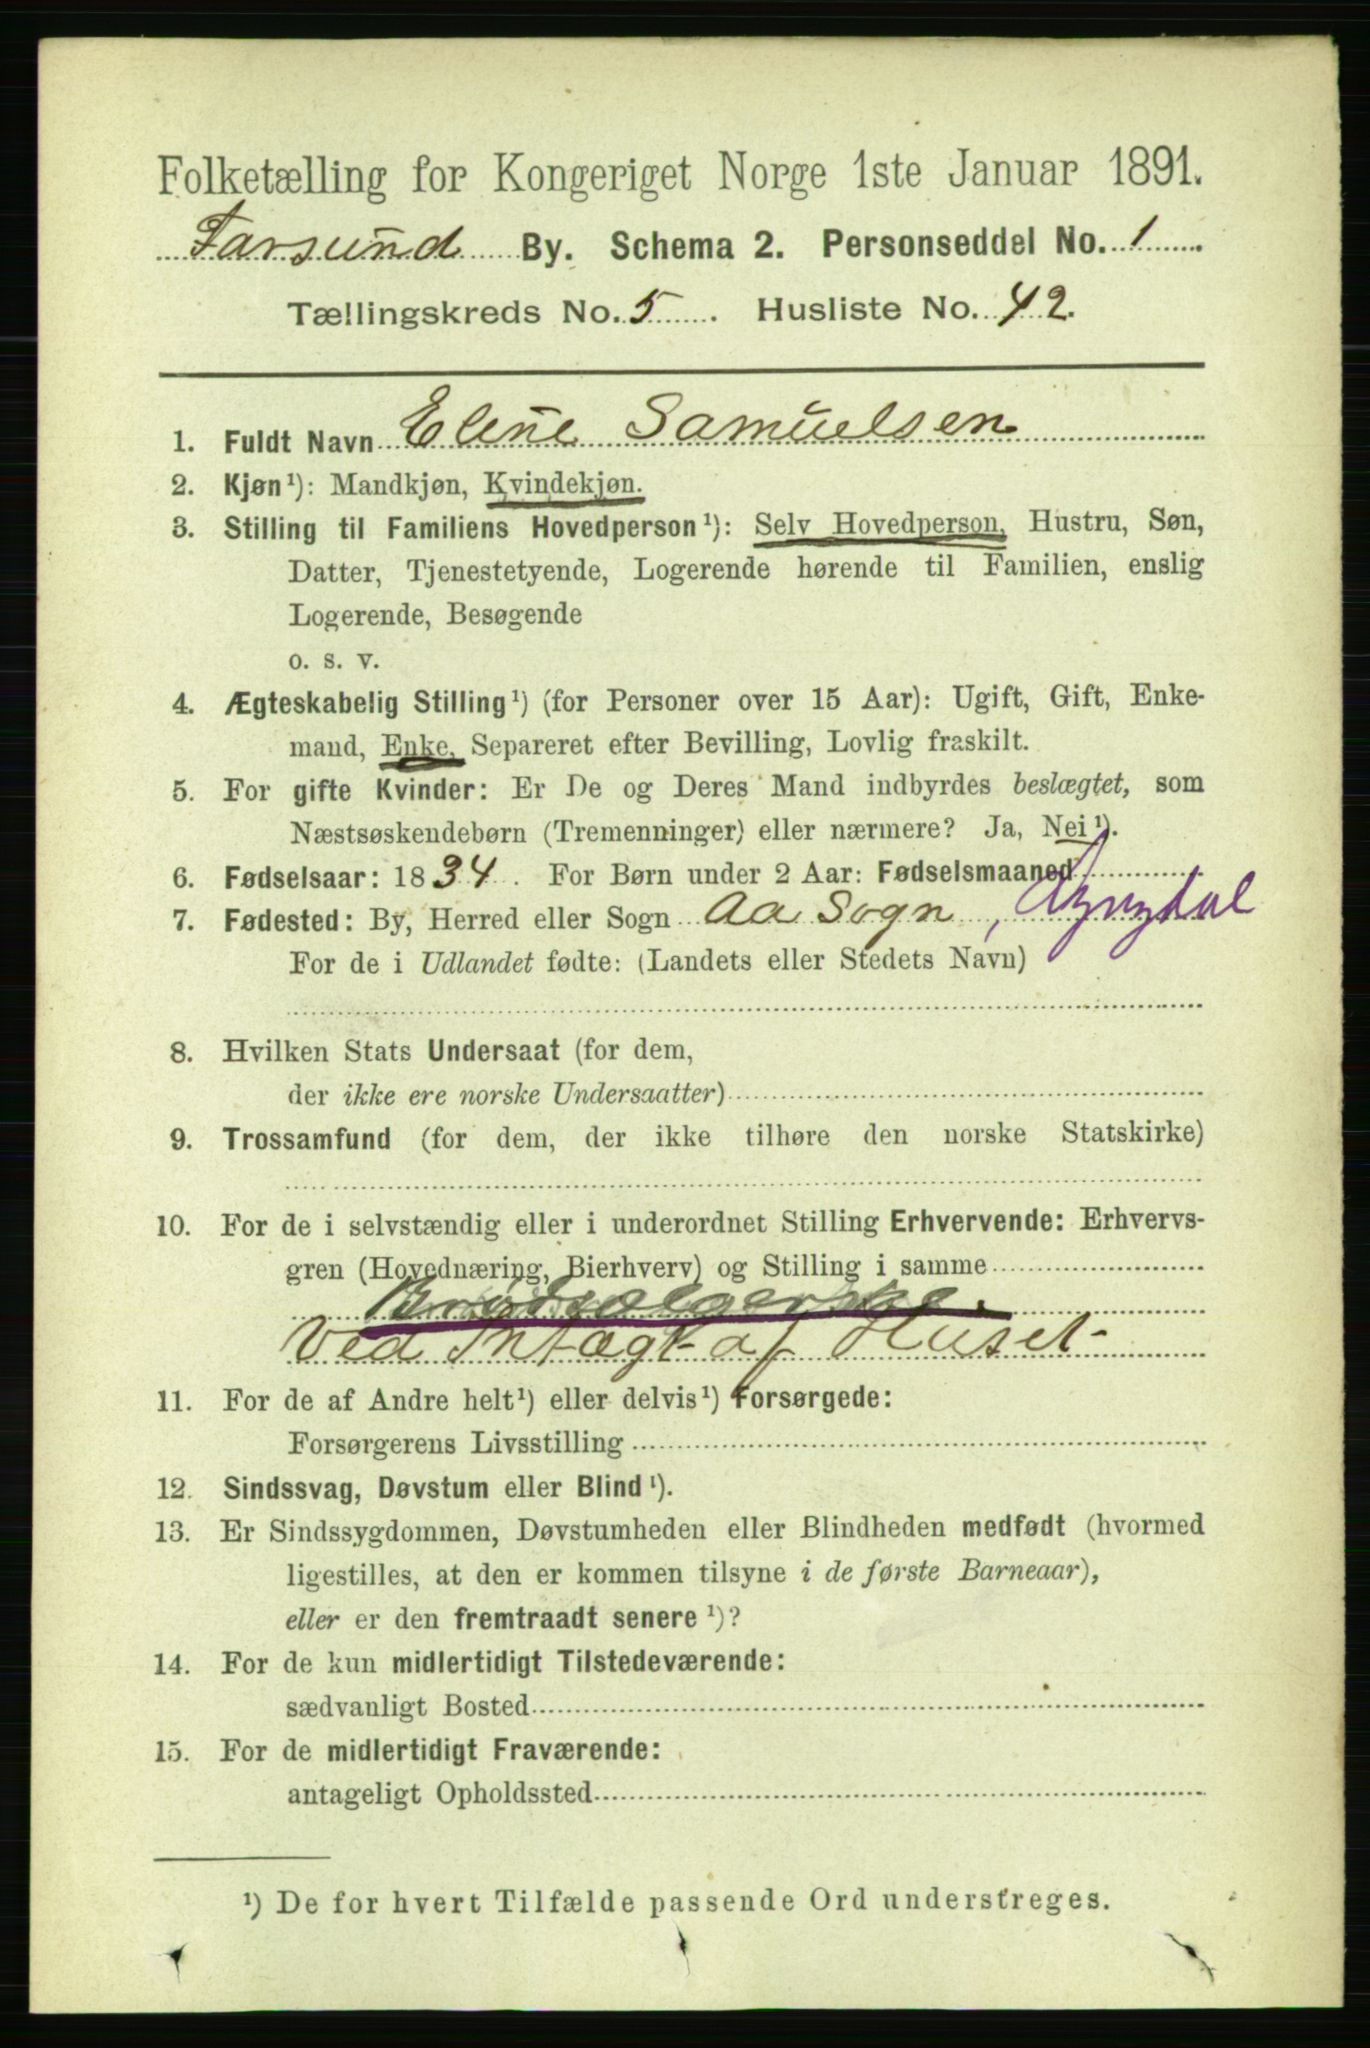 Folketælling for Kongeriget Norge 1ste Januar 1891.
Farsund By. Schema 2. Personseddel No. 1
Tællingskreds No. 5. Husliste No. 42.
1. Fuldt Navn Elene Samuelsen
2. Kjøn¹): Mandkjøn, Kvindekjøn.
3. Stilling til Familiens Hovedperson¹): Selv Hovedperson, Hustru, Søn,
Datter, Tjenestetyende, Logerende hørende til Familien, enslig
Logerende, Besøgende
o. s. v.
4. Ægteskabelig Stilling¹) (for Personer over 15 Aar): Ugift, Gift, Enke-
mand, Enke, Separeret efter Bevilling, Lovlig fraskilt.
5. For gifte Kvinder: Er De og Deres Mand indbyrdes beslægtet, som
Næstsøskendebørn (Tremenninger) eller nærmere? Ja, Nei¹).
6. Fødselsaar: 1834. For Børn under 2 Aar: Fødselsmaaned
7. Fødested: By, Herred eller Sogn Aa Sogn, Lyngdal
For de i Udlandet fødte: (Landets eller Stedets Navn)
8. Hvilken Stats Undersaat (for dem,
der ikke ere norske Undersaatter)
9. Trossamfund (for dem, der ikke tilhøre den norske Statskirke)
10. For de i selvstændig eller i underordnet Stilling Erhvervende: Erhvervs-
gren (Hovednæring, Bierhverv) og Stilling i samme
Brødsælgerske.
Ved Intægt af Huset
11. For de af Andre helt¹) eller delvis¹) Forsørgede:
Forsørgerens Livsstilling
12. Sindssvag, Døvstum eller Blind¹).
13. Er Sindssygdommen, Døvstumheden eller Blindheden medfødt (hvormed
ligestilles, at den er kommen tilsyne i de første Barneaar),
eller er den fremtraadt senere¹)?
14. For de kun midlertidigt Tilstedeværende:
sædvanligt Bosted
15. For de midlertidigt Fraværende:
antageligt Opholdssted
¹) De for hvert Tilfælde passende Ord understreges.